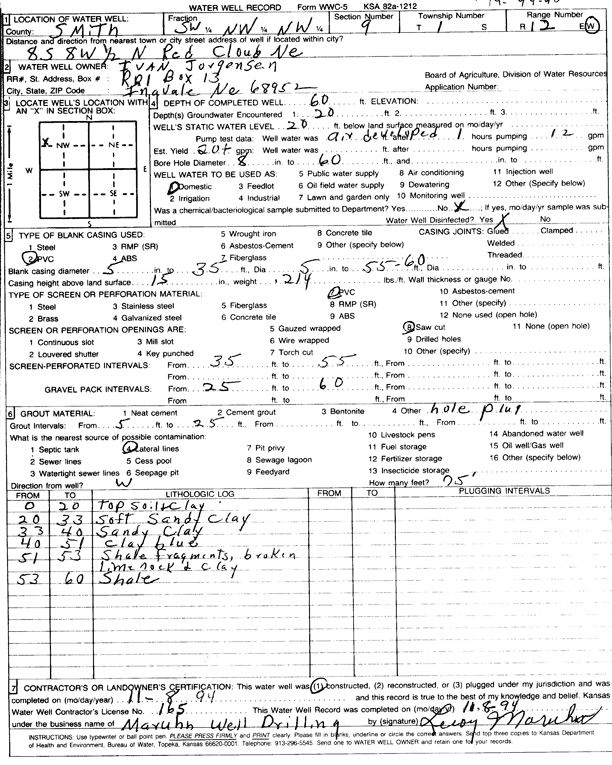 WATER WELL RECORD Form WWC-5 KSA 82a-1212
1 LOCATION OF WATER WELL: Fraction Section Number Township Number Range Number
County: Smith SW ¼ NW ¼ NW ¼ 9 T 1 S R 12 E/W
Distance and direction from nearest town or city street address of well if located within city?
8S 8W ½ N Red Cloud Ne
2 WATER WELL OWNER: Ivan Jorgensen
RR#, St. Address, Box # : RR1 Box 13 Board of Agriculture, Division of Water Resources
City, State, ZIP Code : Inavale Ne 68952 Application Number:
3 LOCATE WELL'S LOCATION WITH AN "X" IN SECTION BOX:
N
X NW NE
W E
SW SE
S
1 Mile
4 DEPTH OF COMPLETED WELL 60 ft. ELEVATION:
Depth(s) Groundwater Encountered 1. 20 ft. 2. ft. 3. ft.
WELL'S STATIC WATER LEVEL 20 ft. below land surface measured on mo/day/yr
Pump test data: Well water was air developed ft. after 1 hours pumping 12 gpm
Est. Yield 20+ gpm: Well water was ft. after hours pumping gpm
Bore Hole Diameter 8 in. to 60 ft., and in. to ft.
WELL WATER TO BE USED AS: 5 Public water supply 8 Air conditioning 11 Injection well
1 Domestic 3 Feedlot 6 Oil field water supply 9 Dewatering 12 Other (Specify below)
2 Irrigation 4 Industrial 7 Lawn and garden only 10 Monitoring well
Was a chemical/bacteriological sample submitted to Department? Yes No X ; If yes, mo/day/yr sample was submitted Water Well Disinfected? Yes X No
5 TYPE OF BLANK CASING USED: 5 Wrought iron 8 Concrete tile CASING JOINTS: Glued X Clamped
1 Steel 3 RMP (SR) 6 Asbestos-Cement 9 Other (specify below) Welded
2 PVC 4 ABS 7 Fiberglass Threaded
Blank casing diameter 5 in. to 35 ft., Dia 5 in. to 55-60 ft., Dia in. to ft.
Casing height above land surface 15 in., weight .214 lbs./ft. Wall thickness or gauge No.
TYPE OF SCREEN OR PERFORATION MATERIAL: 7 PVC 10 Asbestos-cement
1 Steel 3 Stainless steel 5 Fiberglass 8 RMP (SR) 11 Other (specify)
2 Brass 4 Galvanized steel 6 Concrete tile 9 ABS 12 None used (open hole)
SCREEN OR PERFORATION OPENINGS ARE: 5 Gauzed wrapped 8 Saw cut 11 None (open hole)
1 Continuous slot 3 Mill slot 6 Wire wrapped 9 Drilled holes
2 Louvered shutter 4 Key punched 7 Torch cut 10 Other (specify)
SCREEN-PERFORATED INTERVALS: From 35 ft. to 55 ft., From ft. to ft.
From ft. to ft., From ft. to ft.
GRAVEL PACK INTERVALS: From 25 ft. to 60 ft., From ft. to ft.
From ft. to ft., From ft. to ft.
6 GROUT MATERIAL: 1 Neat cement 2 Cement grout 3 Bentonite 4 Other hole plug
Grout Intervals: From 5 ft. to 25 ft., From ft. to ft., From ft. to ft.
What is the nearest source of possible contamination: 10 Livestock pens 14 Abandoned water well
1 Septic tank 4 Lateral lines 7 Pit privy 11 Fuel storage 15 Oil well/Gas well
2 Sewer lines 5 Cess pool 8 Sewage lagoon 12 Fertilizer storage 16 Other (specify below)
3 Watertight sewer lines 6 Seepage pit 9 Feedyard 13 Insecticide storage
Direction from well? W How many feet? 75'
FROM TO LITHOLOGIC LOG FROM TO PLUGGING INTERVALS
0 20 Top soil & clay
20 33 Soft Sandy Clay
33 40 Sandy Clay
40 51 Clay blue
51 53 Shale fragments, broken
limerock & clay
53 60 Shale
7 CONTRACTOR'S OR LANDOWNER'S CERTIFICATION: This water well was (1) constructed, (2) reconstructed, or (3) plugged under my jurisdiction and was
completed on (mo/day/year) 11-8-94 and this record is true to the best of my knowledge and belief. Kansas
Water Well Contractor's License No. 165 This Water Well Record was completed on (mo/day/yr) 11-8-94
under the business name of Maruhn Well Drilling by (signature) Leroy Maruhn
INSTRUCTIONS: Use typewriter or ball point pen. PLEASE PRESS FIRMLY and PRINT clearly. Please fill in blanks, underline or circle the correct answers. Send top three copies to Kansas Department
of Health and Environment, Bureau of Water, Topeka, Kansas 66620-0001. Telephone: 913-296-5545. Send one to WATER WELL OWNER and retain one for your records.